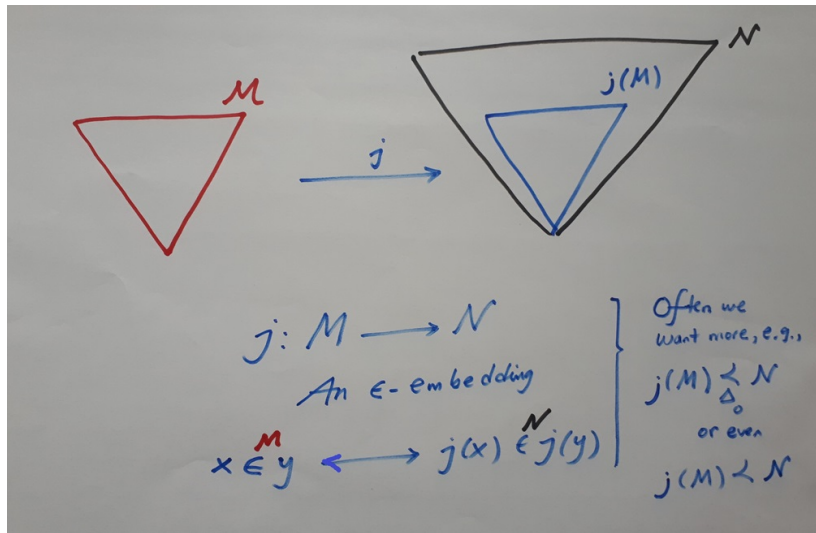 M
N
j(M)
j
j: M ⟶ N
An ∈-embedding
x ∈ᴹ y ⟷ j(x) ∈ᴺ j(y)
Often we
want more, e.g.,
j(M) ≺_Δ₀ N
or even
j(M) ≺ N